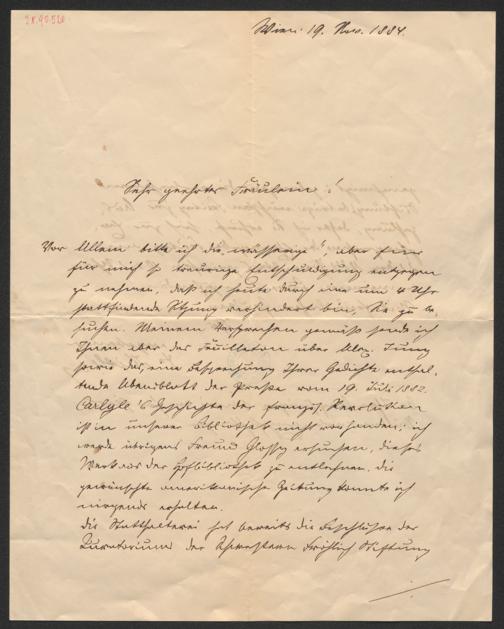 Wien 19. Nov. 1884.
Sehr geehrtes Fräulein!
Vor Allem bitte ich die, aber
für mich so traurige Entschuldigung entgegen
zu nehmen, daß ich heute durch eine um 4 Uhr
stattfindende Sitzung verhindert bin, Sie zu be-
suchen. Meinem Versprechen gemäß sende ich
Ihnen aber das Feuilleton über Alex. Jung
sowie das, eine Besprechung Ihrer Gedichte enthal-
tende Abendblatt der Presse vom 19. Juli 1882.
Carlyle's Geschichte der französ. Revolution
ist in unserer Bibliothek nicht vorhanden; ich
werde übrigens Freund Glossy ersuchen, dieses
Werk aus der Hofbibliothek zu entlehnen, die
gewünschte amerikanische Zeitung konnte ich
nirgends erhalten.
Die Statthalterei hat bereits die Beschlüsse des
Curatoriums der Schwestern Fröhlich Stiftung